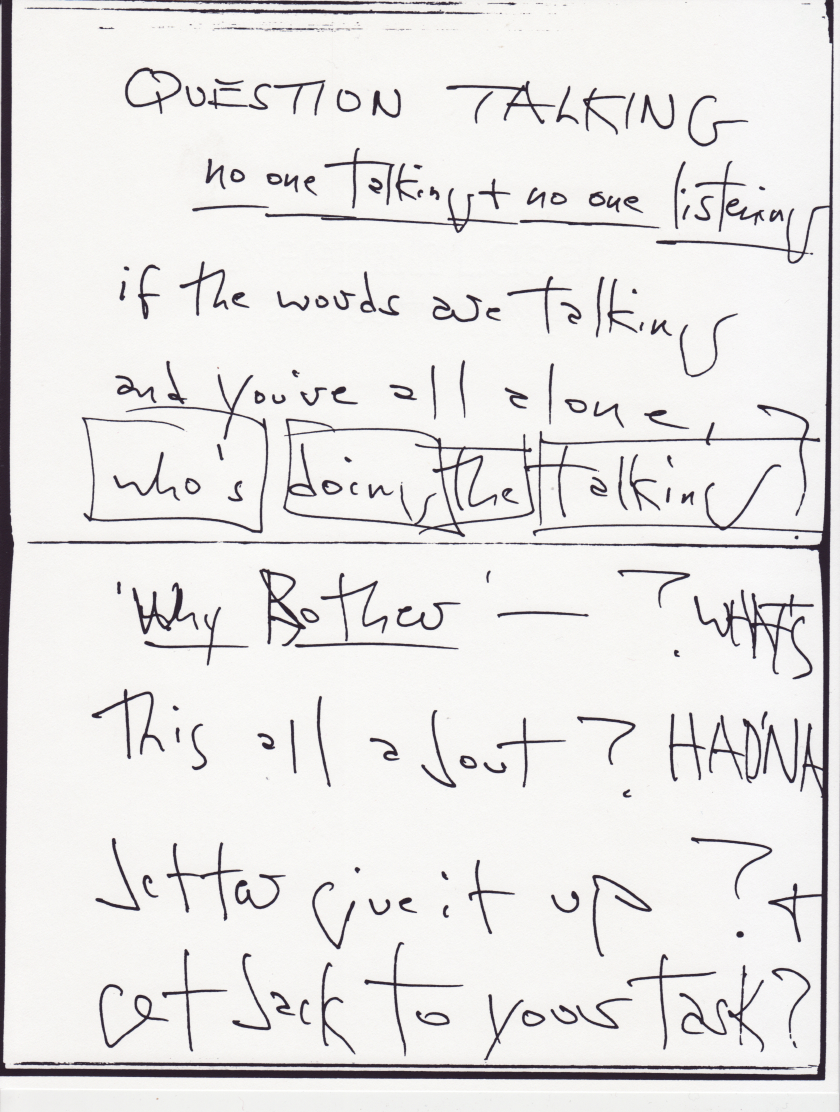 QUESTION TALKING
no one talking + no one listening
if the words are talking
and you're all alone, ?
who's doing the talking
'Why Bother' — ? WHAT'S
this all about ? HAD'NA
better give it up ? +
get back to your task?